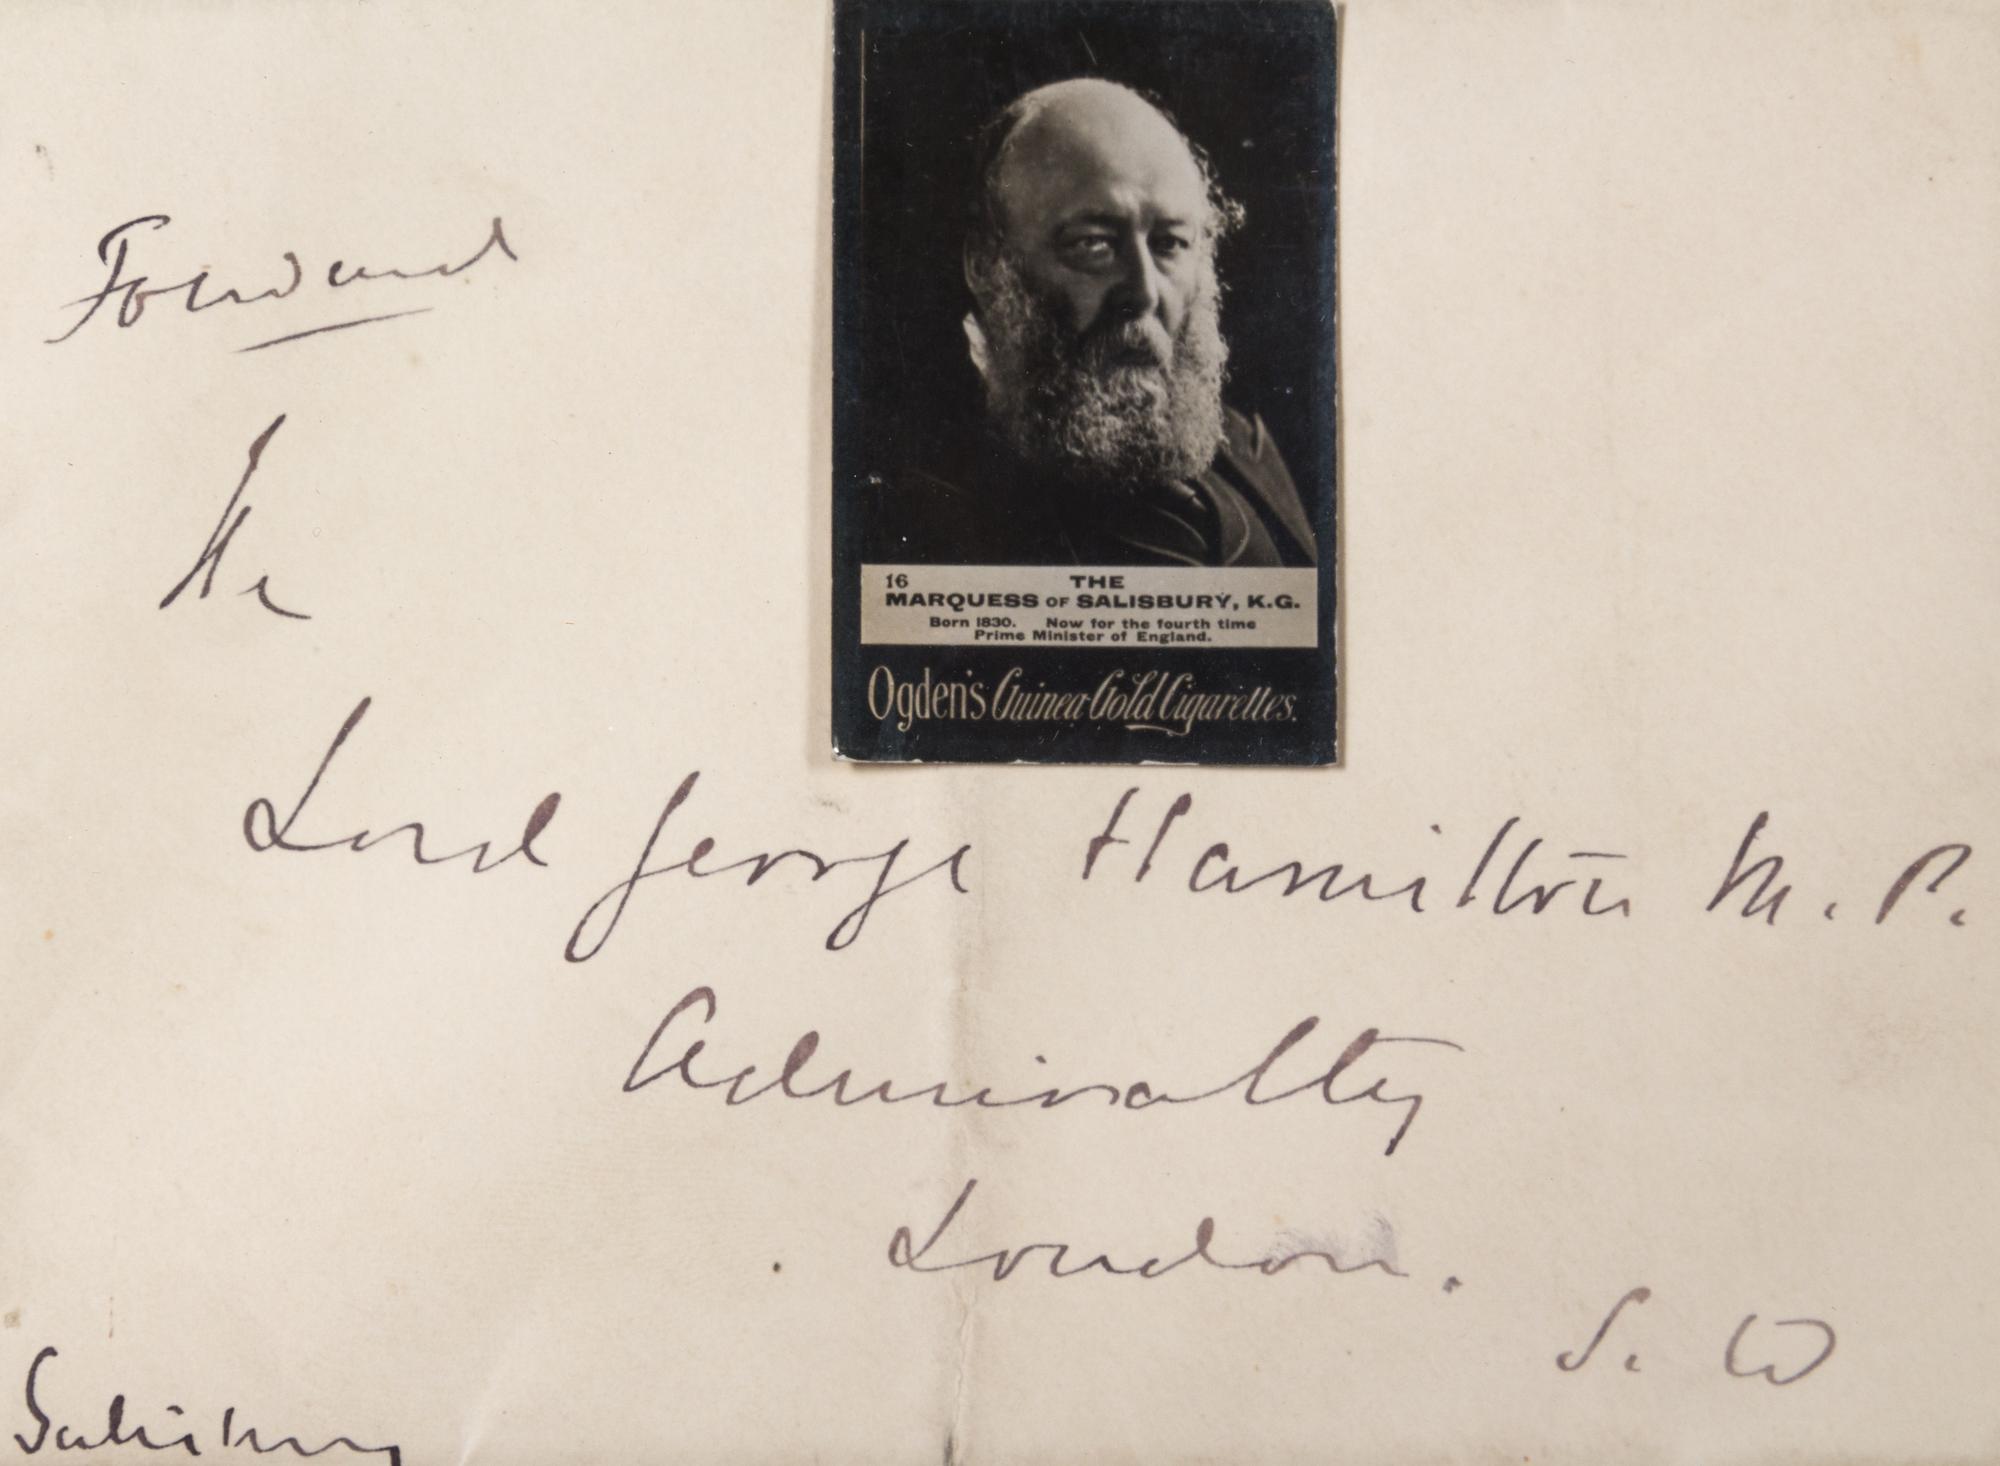 Forward
The
16 THE
MARQUESS OF SALISBURY, K.G.
Born 1830. Now for the fourth time
Prime Minister of England.
Ogden's Guinea Gold Cigarettes.
Lord George Hamilton M. P.
Admiralty
London.
S. W
Salisbury